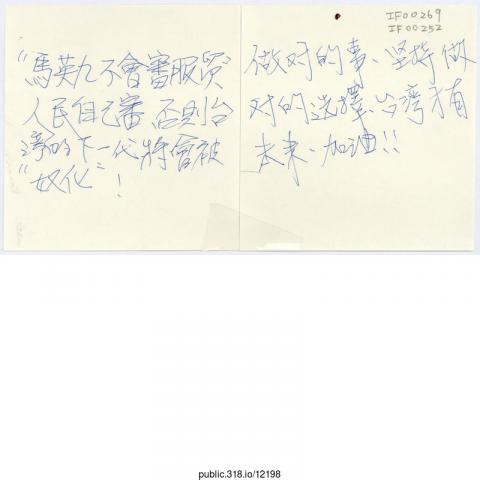 "馬英九不會審服贸"
人民自己審 否則台
湾的下一代將會被
"奴化"!
IF00269
IF00252
做对的事、坚持做
对的选擇、台灣才有
未来、加油!!
public.318.io/12198